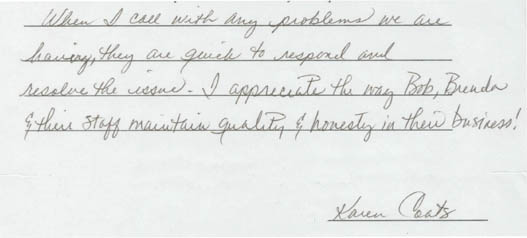 When I call with any problems we are
having, they are quick to respond and
resolve the issue. I appreciate the way Bob, Brenda
& their staff maintain quality & honesty in their business!
Karen Coats